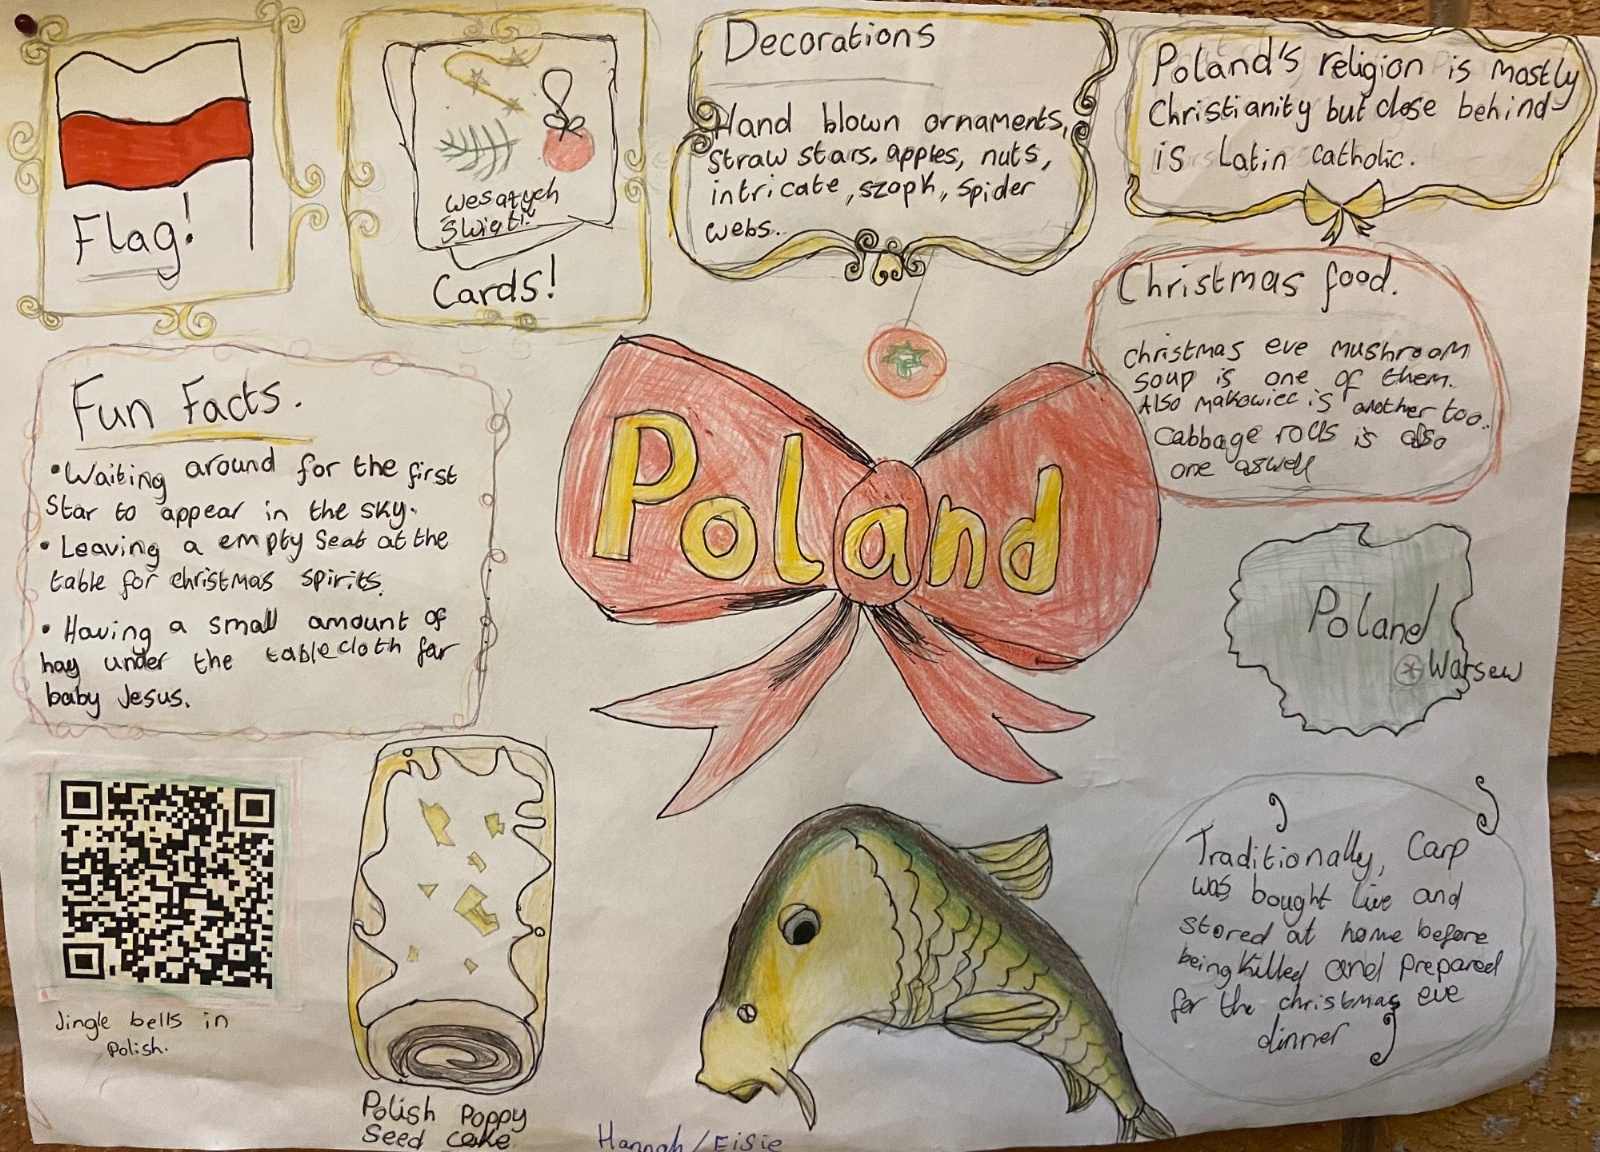 Flag!
Wesaych
Świąt!
Cards!
Decorations
Hand blown ornaments,
straw stars, apples, nuts,
intricate, szopk, spider
webs.
Poland's religion is mostly
Christianity but close behind
is Latin catholic.
Christmas food.
christmas eve mushroom
soup is one of them.
Also makowiec is another too..
cabbage rolls is also
one aswell
Fun Facts.
•Waiting around for the first
Star to appear in the sky.
• Leaving a empty seat at the
table for christmas spirits.
• Having a small amount of
hay under the tablecloth for
baby Jesus.
Poland
Poland
Warsew
Jingle bells in
Polish.
Polish Poppy
Seed cake
Traditionally, Carp
was bought live and
stored at home before
being killed and prepared
for the christmas eve
dinner
Hannah/Eisie